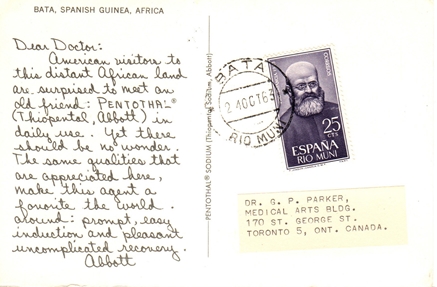 BATA, SPANISH GUINEA, AFRICA
Dear Doctor:
American visitors to
this distant African land
are surprised to meet an
old friend: PENTOTHAL®
(Thiopental, Abbott) in
daily use. Yet there
should be no wonder.
The same qualities that
are appreciated here,
make this agent a
favorite the world
around: prompt, easy
induction and pleasant
uncomplicated recovery.
Abbott
PENTOTHAL® SODIUM (Thiopental Sodium, Abbott)
BATA
24 OCT 63
RIO MUNI
25
CTS
ESPAÑA
RIO MUNI
DR. G. P. PARKER,
MEDICAL ARTS BLDG.
170 ST. GEORGE ST.
TORONTO 5, ONT. CANADA.